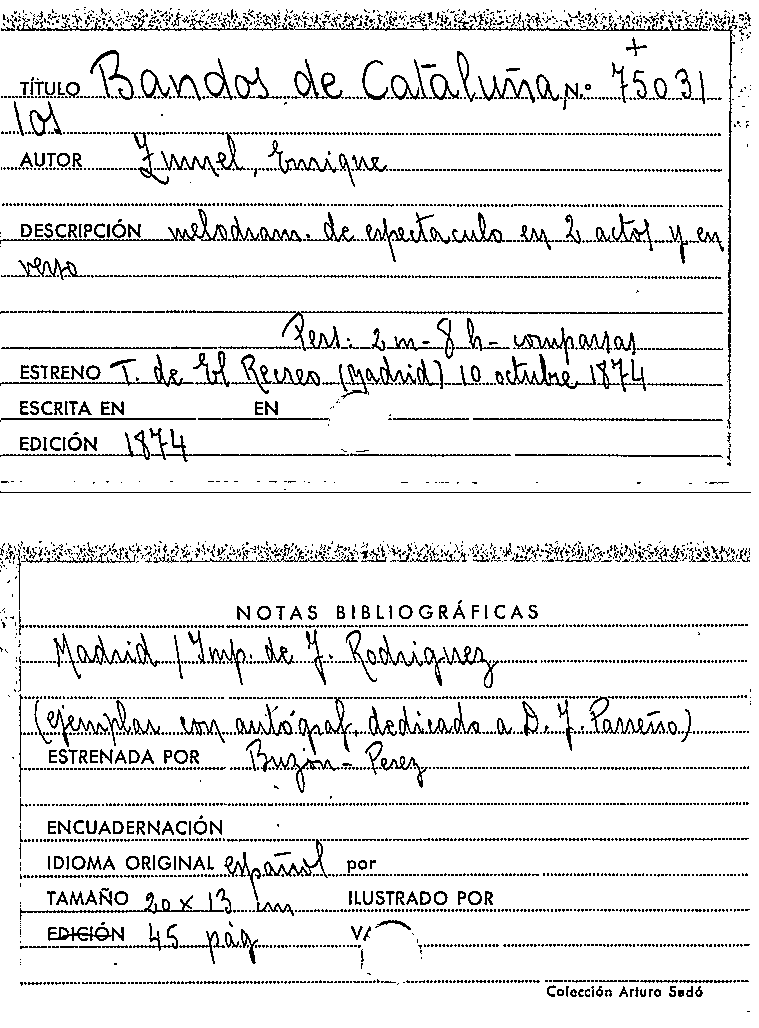 +
TÍTULO Bandos de Cataluña, N.º 75031
los
AUTOR Zumel, Enrique
DESCRIPCIÓN melodram. de espectaculo en 2 actos y en
verso
Pers: 2 m - 8 h - comparsas
ESTRENO T. de El Recreo (Madrid) 10 octubre 1874
ESCRITA EN EN
EDICIÓN 1874
NOTAS BIBLIOGRÁFICAS
Madrid / Imp. de J. Rodriguez
(ejemplar con autógraf. dedicado a D. J. Parreño)
ESTRENADA POR Buzón - Perez
ENCUADERNACIÓN
IDIOMA ORIGINAL español por
TAMAÑO 20 x 13 cm ILUSTRADO POR
EDICIÓN 45 pág
Colección Arturo Sedó